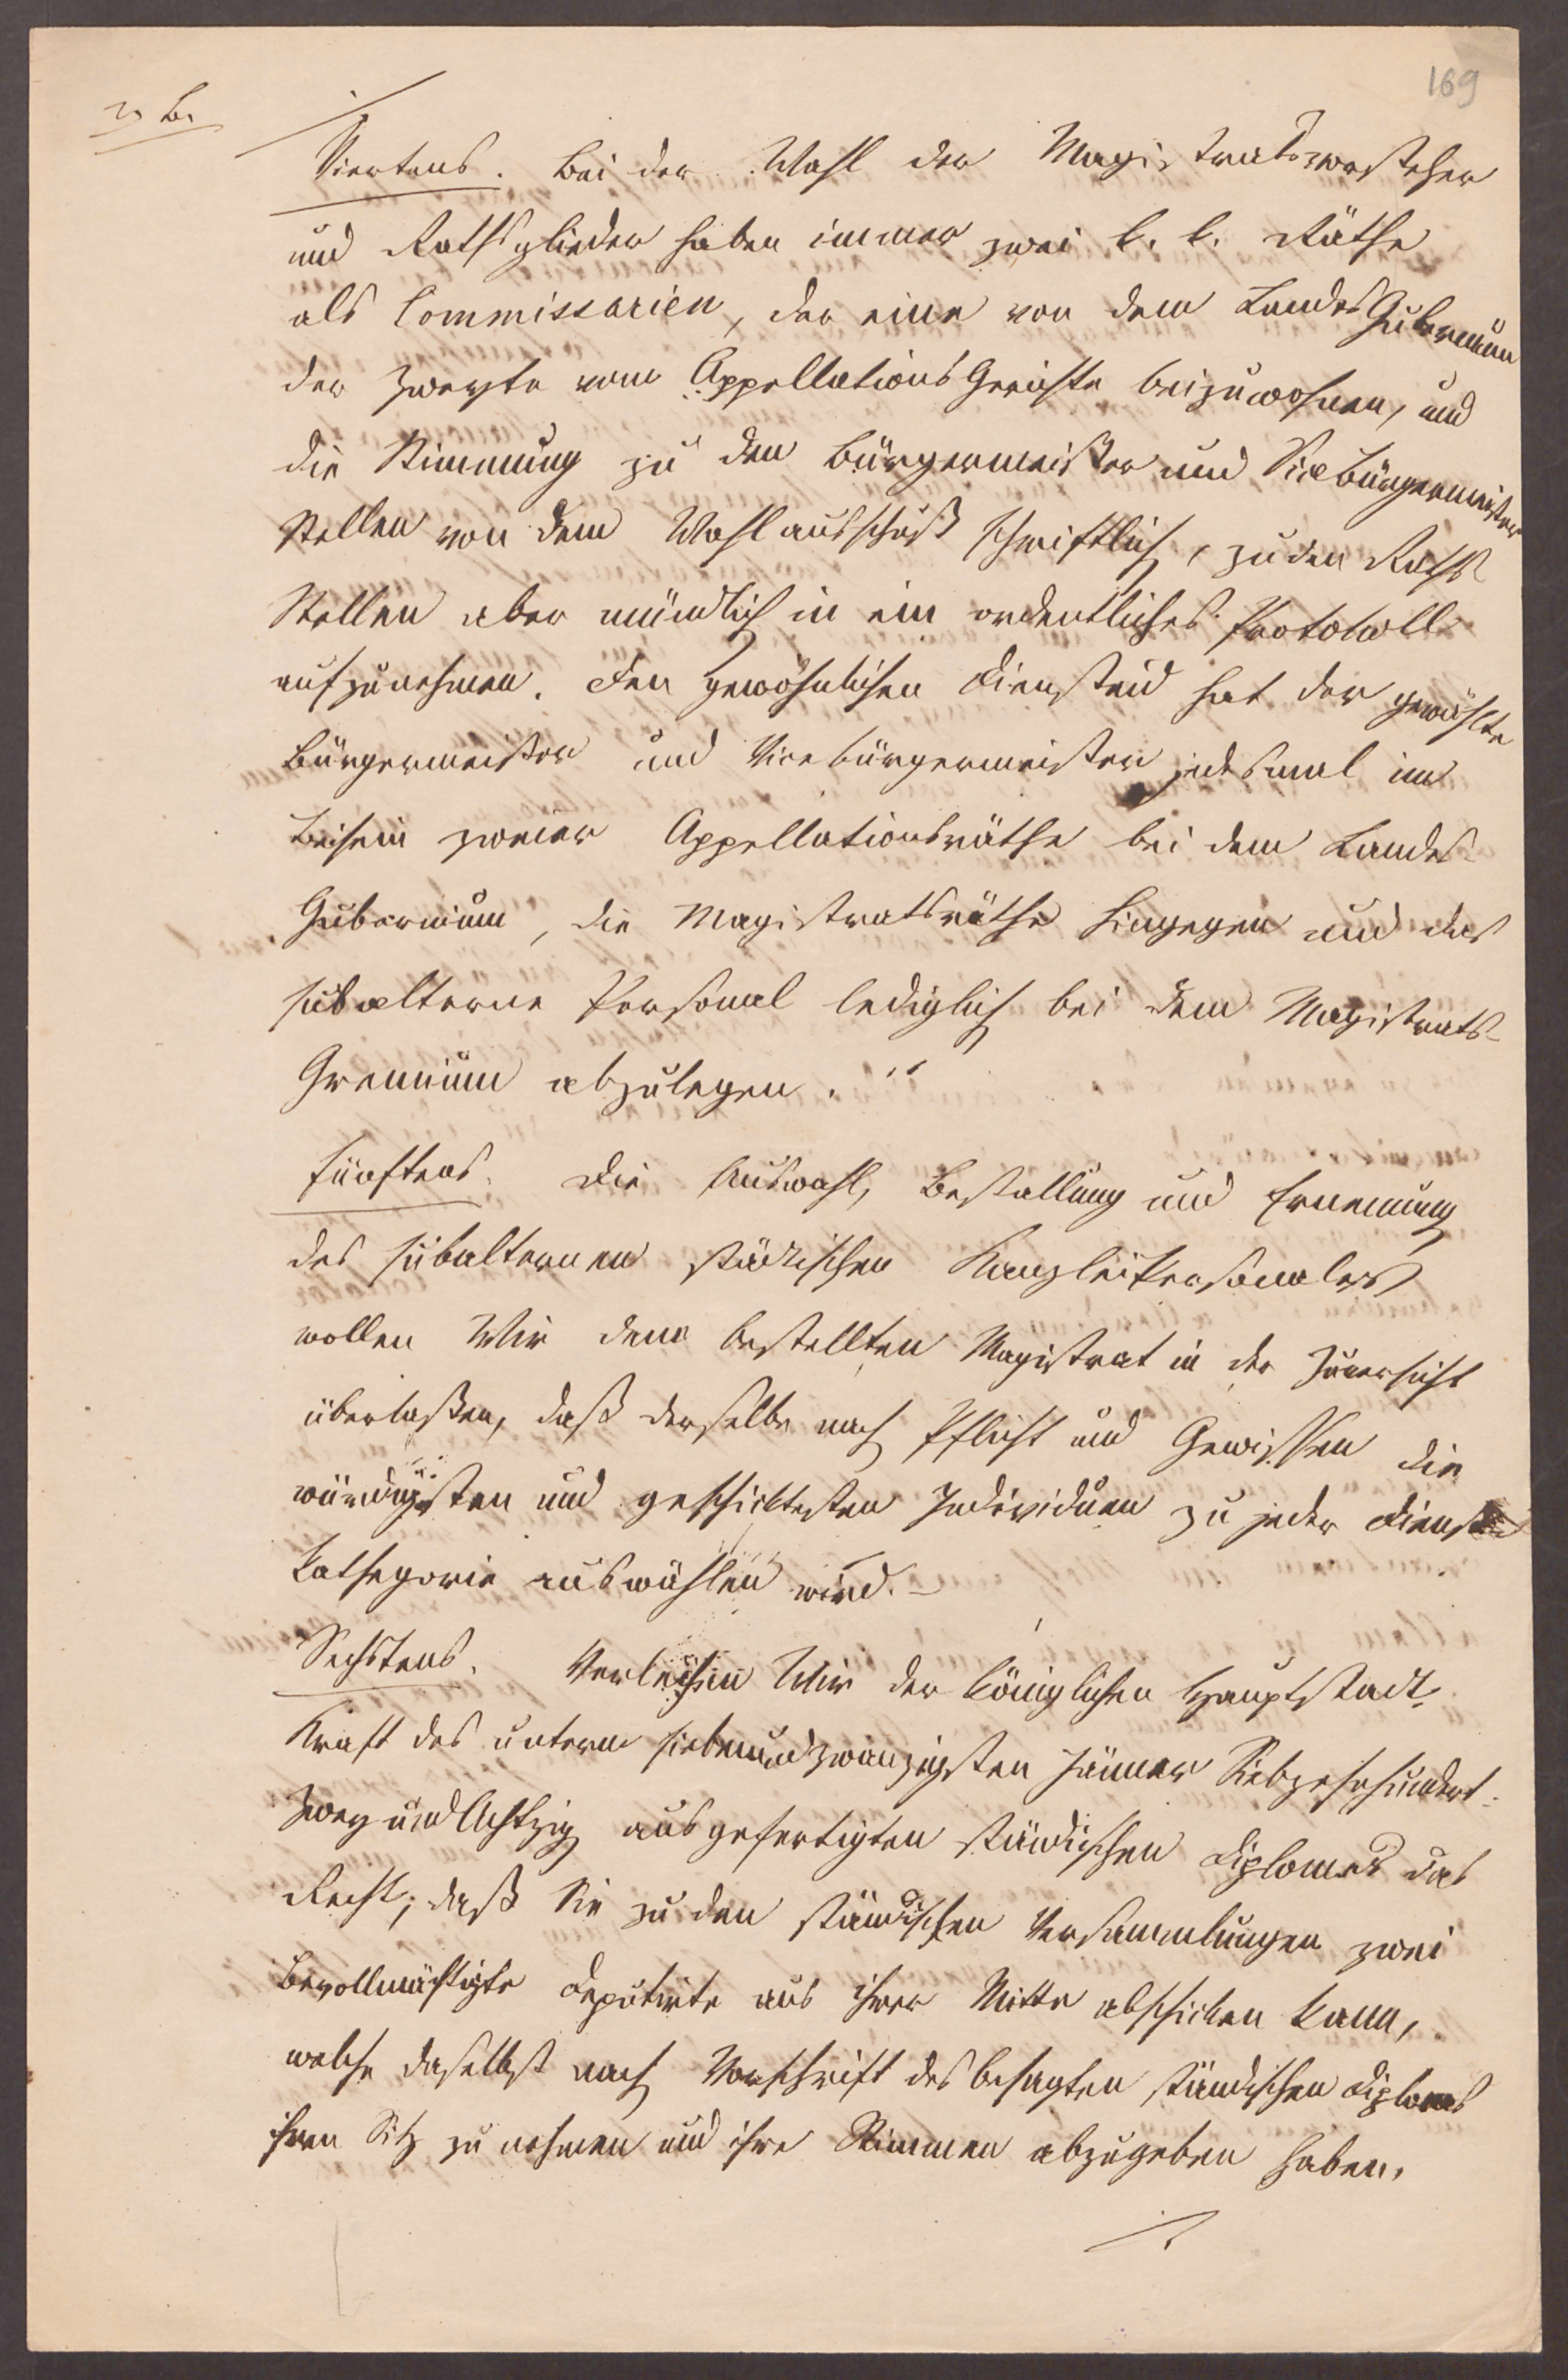 169
Viertens. Bei der Wahl der Magistratsvorsteher
und Rathsglieder haben immer zwei k. k. Räthe
als Commissarien, der eine von dem Landes Gubernium
der zweyte vom Appellations Gerichte beizuwohnen, und
die Stimmung zu den Bürgermeister und Vicebürgermeister
Stellen von dem Wahlausschuß schriftlich, zu den Raths
Stellen aber mündlich in ein ordentliches Protokoll
aufzunehmen. Den gewöhnlichen Diensteid hat der gewählte
Bürgermeister und Vicebürgermeister jedesmal im
Beisein zweier Appellationsräthe bei dem Landes-
Gubernium, die Magistratsräthe hingegen und das
subalterne Personal lediglich bei dem Magistrats-
Gremium abzulegen. "
Fünftens. Die Auswahl, Bestallung und Ernennung
des subalternen städtischen Kanzleipersonales
wollen Wir dem bestellten Magistrat in der Zuversicht
überlaßen, daß derselbe nach Pflicht und Gewissen die
würdigsten und geschicktesten Individuen zu jeder Dienst
Kathegorie auswählen wird. –
Sechstens. Verleihen Wir der königlichen Hauptstadt
Kraft des unterm siebenundzwanzigsten Jänner Siebzehnhundert-
Zwey und Achtzig ausgefertigten ständischen Diplomes das
Recht, daß Sie zu den ständischen Versammlungen zwei
Bevollmächtigte Deputirte aus ihrer Mitte abschicken kann,
welche daselbst nach Vorschrift des besagten ständischen Diploms
ihren Sitz zu nehmen und ihre Stimmen abzugeben haben.